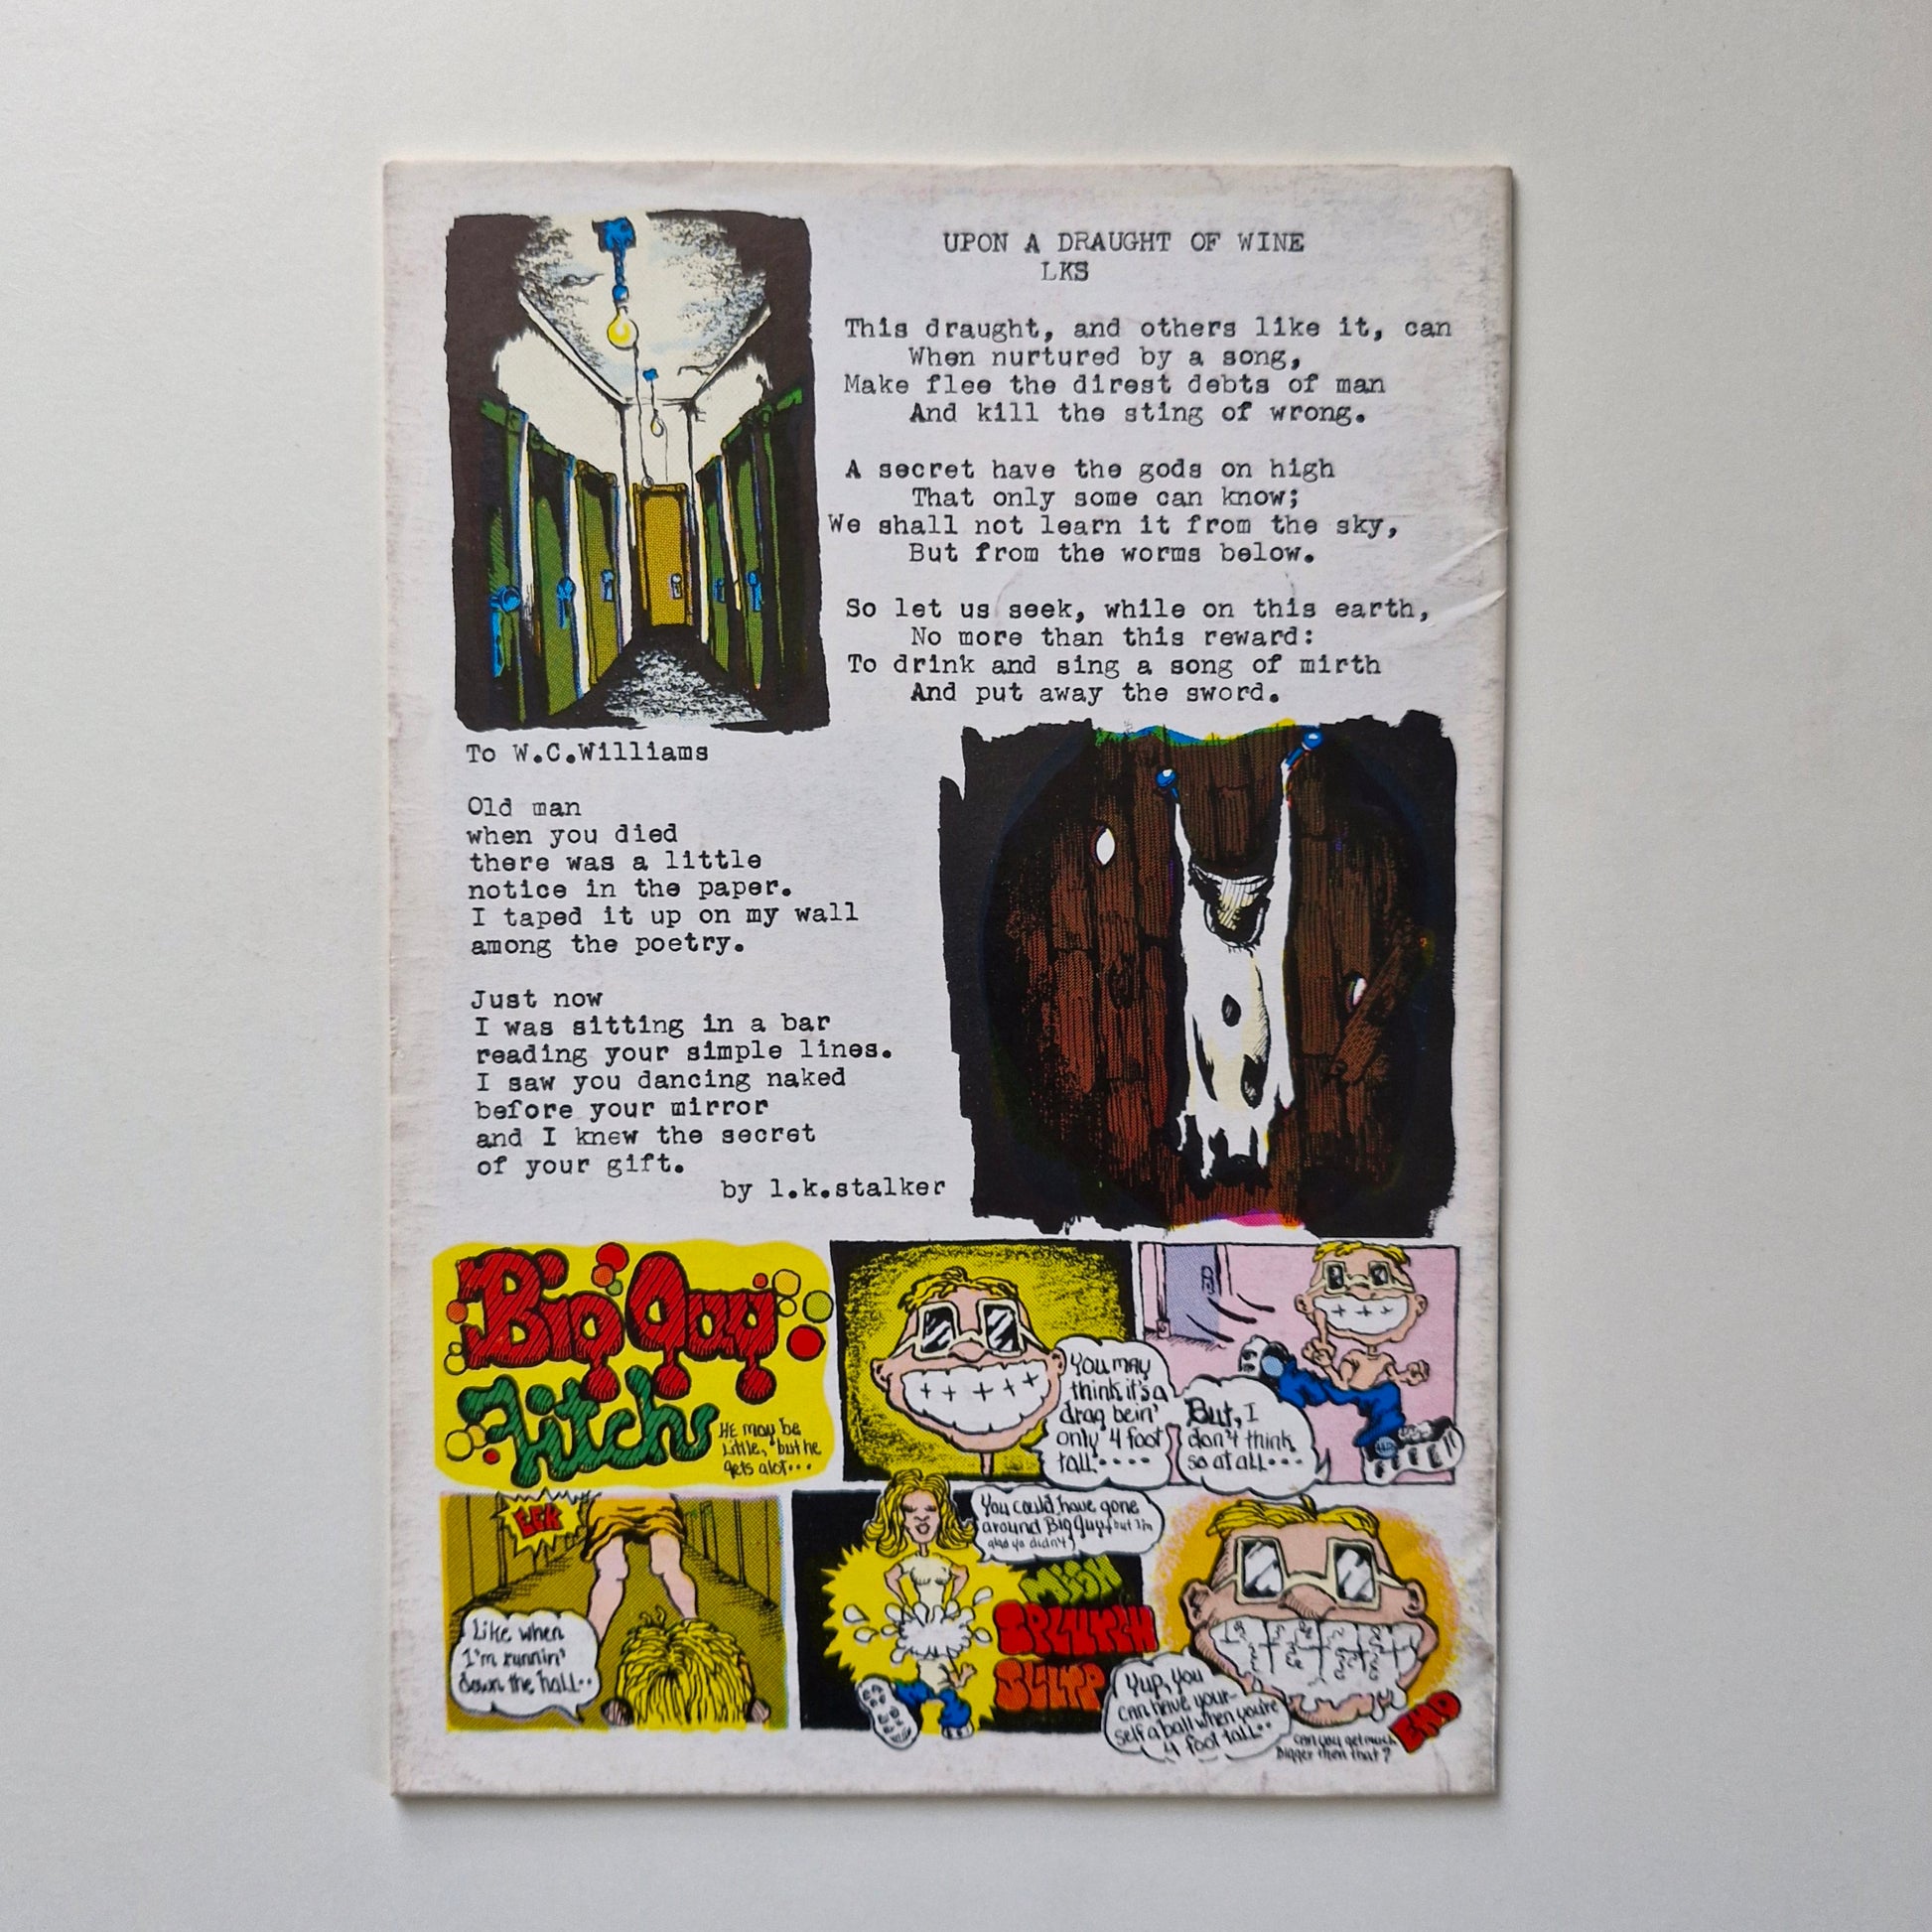 UPON A DRAUGHT OF WINE
LKS
This draught, and others like it, can
When nurtured by a song,
Make flee the direst debts of man
And kill the sting of wrong.
A secret have the gods on high
That only some can know;
We shall not learn it from the sky,
But from the worms below.
So let us seek, while on this earth,
No more than this reward:
To drink and sing a song of mirth
And put away the sword.
To W.C.Williams
Old man
when you died
there was a little
notice in the paper.
I taped it up on my wall
among the poetry.
Just now
I was sitting in a bar
reading your simple lines.
I saw you dancing naked
before your mirror
and I knew the secret
of your gift.
by l.k.stalker
Big Guy
Fitch
HE may be
Little, but he
gets alot...
You may
think it's a
drag bein'
only 4 foot
tall....
But, I
don't think
so at all...
EEK
Like when
I'm runnin'
down the hall..
You could have gone
around Big guy, but I'm
glad ya didn't)
MISH
SPLUTCH
SLURP
Yup, you
can have your-
self a ball when you're
4 foot tall..
can you get much
Bigger then that?
END